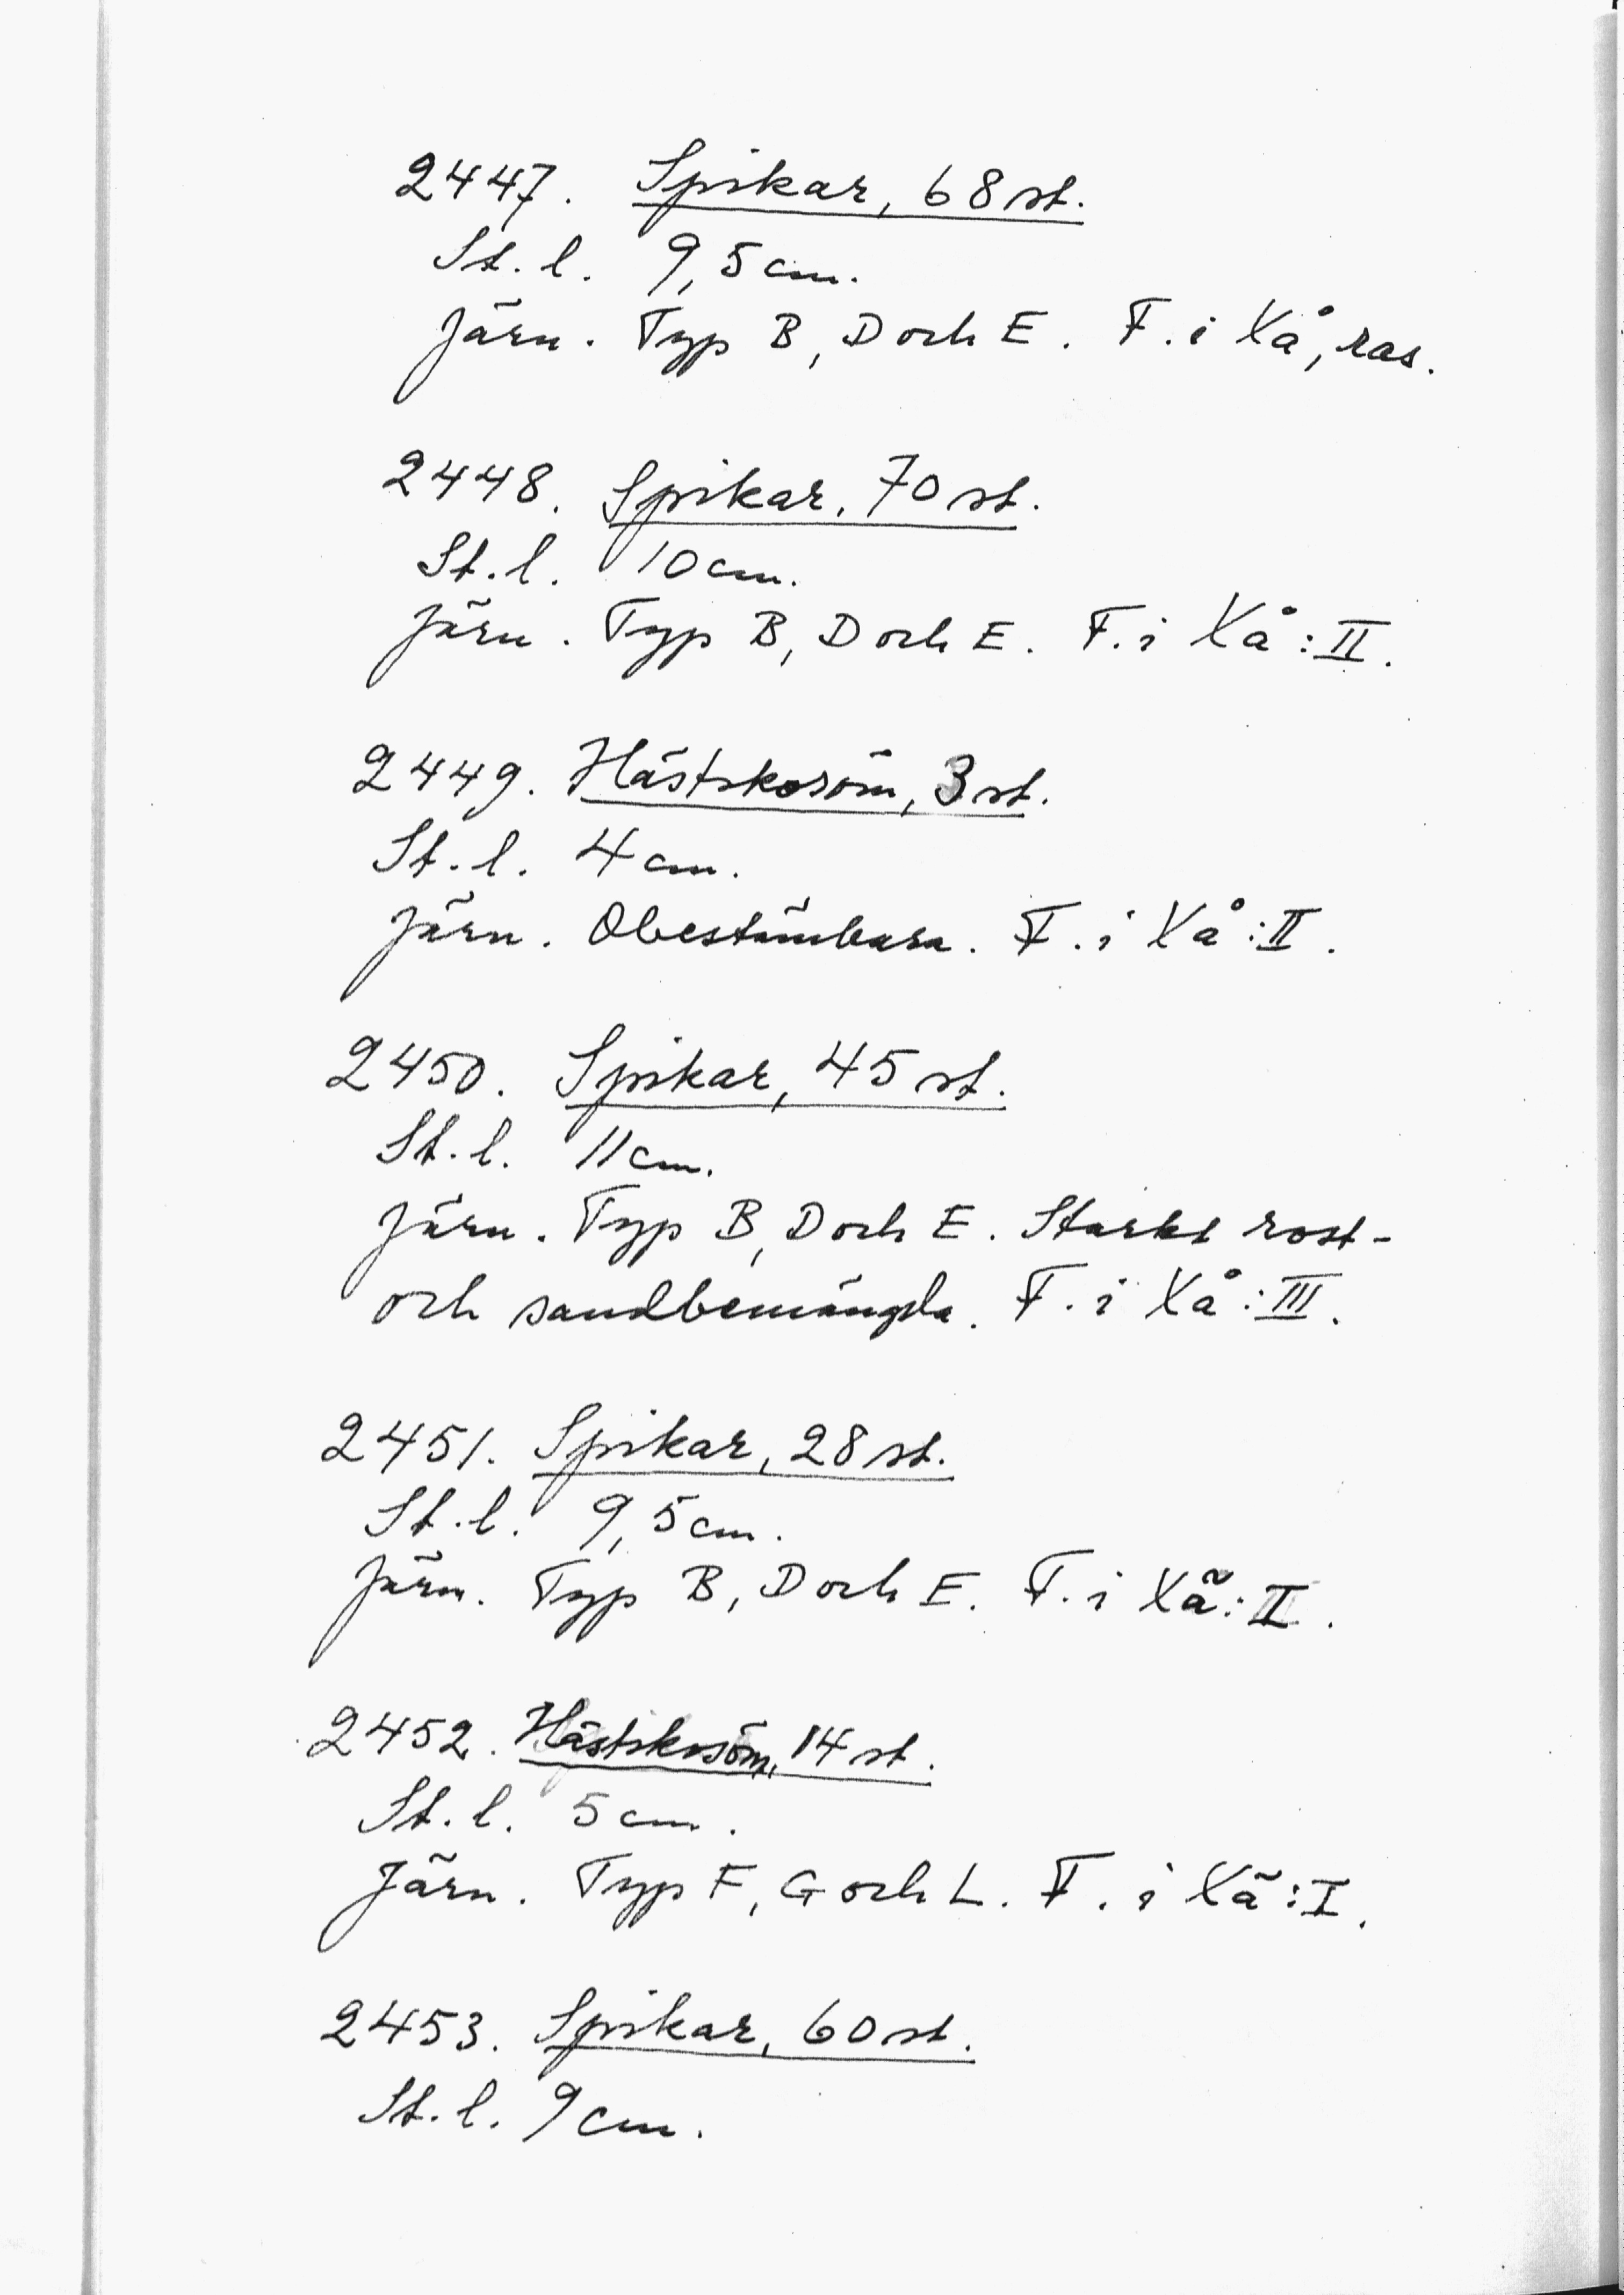 2447. Spikar, 68 st.
St. l. 9,5 cm.
Järn. Typ B, D och E. F. i Xå, ras.
2448. Spikar, 70 st.
St. l. 10 cm.
Järn. Typ B, D och E. F. i Xå: II.
2449. Hästskosöm, 3 st.
St. l. 4 cm.
Järn. Obestämbara. F. i Xå: II.
2450. Spikar, 45 st.
St. l. 11 cm.
Järn. Typ B, D och E. Starkt rost-
och sandbemängda. F. i Xå: III.
2451. Spikar, 28 st.
St. l. 9,5 cm.
Järn. Typ B, D och E. F. i Xä: II.
2452. Hästskosöm, 14 st.
St. l. 5 cm.
Järn. Typ F, G och L. F. i Xä: I.
2453. Spikar, 60 st.
St. l. 9 cm.